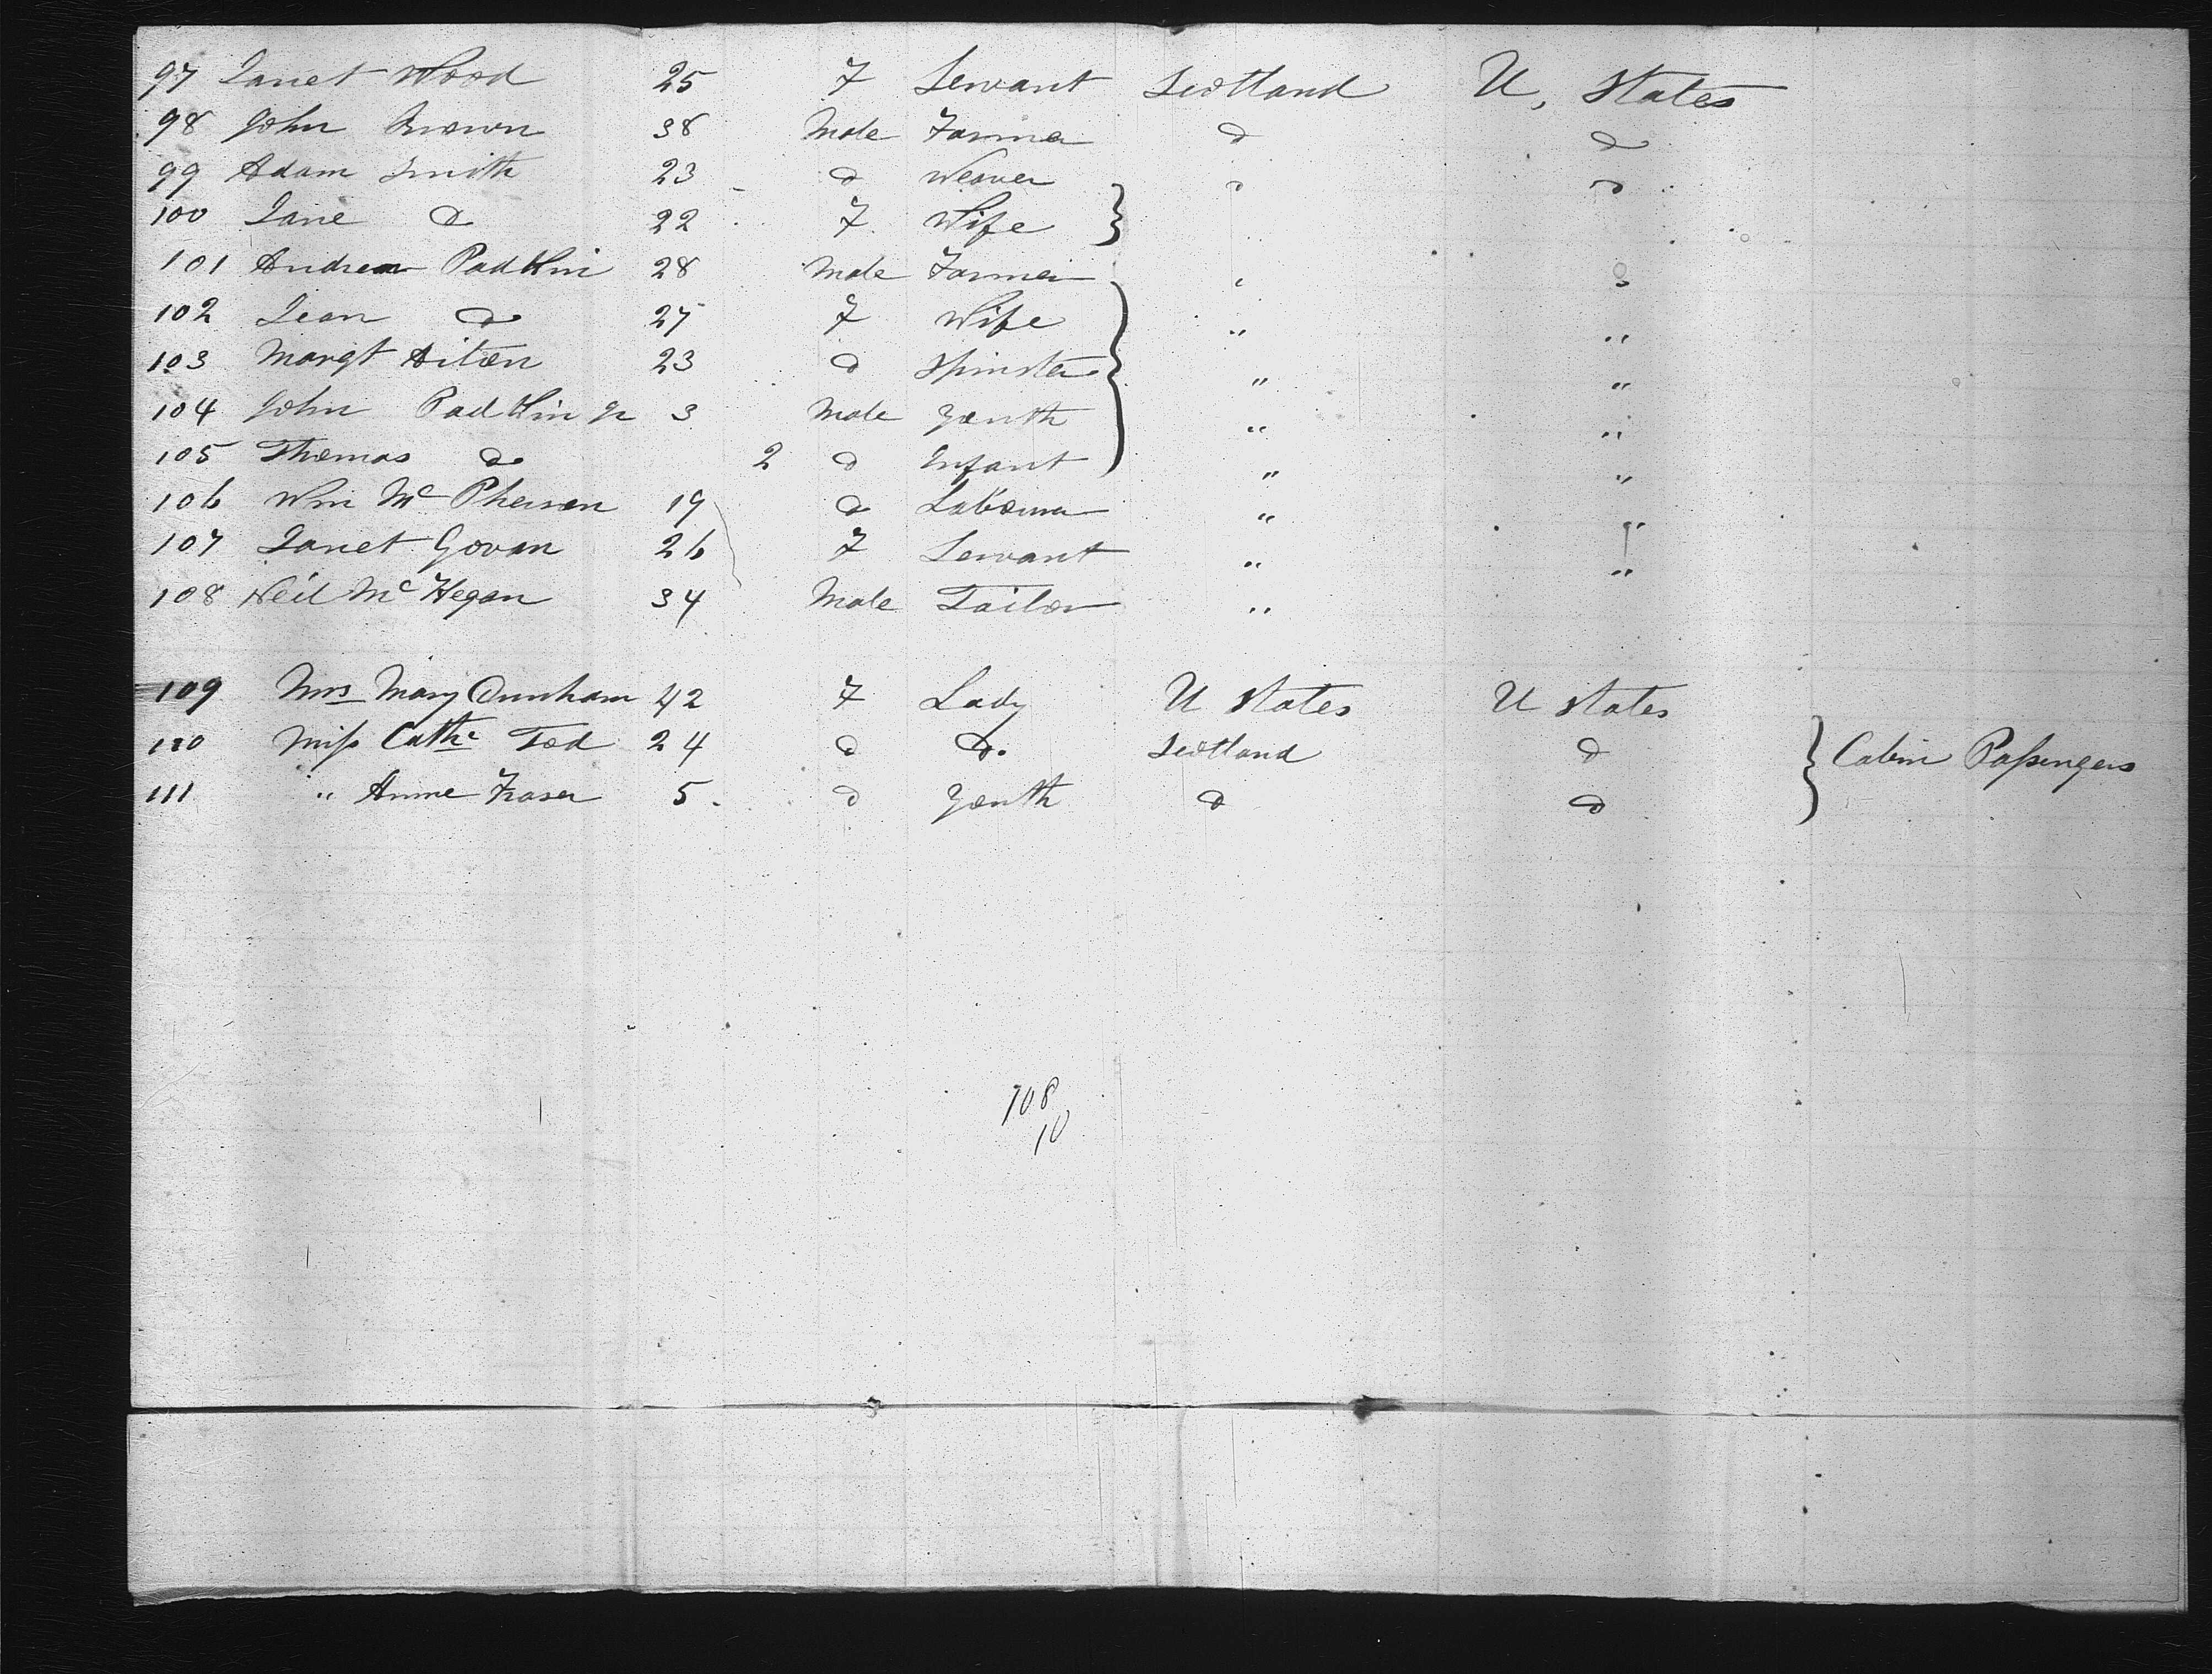 97 Janet Wood 25 F Servant Scotland U, States
98 John Brown 38 Male Farmer d d
99 Adam Smith 23 d Weaver } " d
100 Jane d 22 F Wife
101 Andrew Padkin 28 Male Farmer } " "
102 Jean d 27 F Wife " "
103 Margt Aiton 23 d Spinster " "
104 John Padkin Jr 3 Male Youth " "
105 Thomas d 2 d Infant " "
106 Wm McPherson 19 d Labourer " "
107 Janet Govan 26 F Servant " "
108 Neil Mc 34 Male Tailor " "
109 Mrs Mary Dunham 42 F Lady U States U States
110 Miss Cathe Tod 24 d D. Scotland d } Cabin Passengers
111 " Anne Fraser 5 d Youth d d
108
10